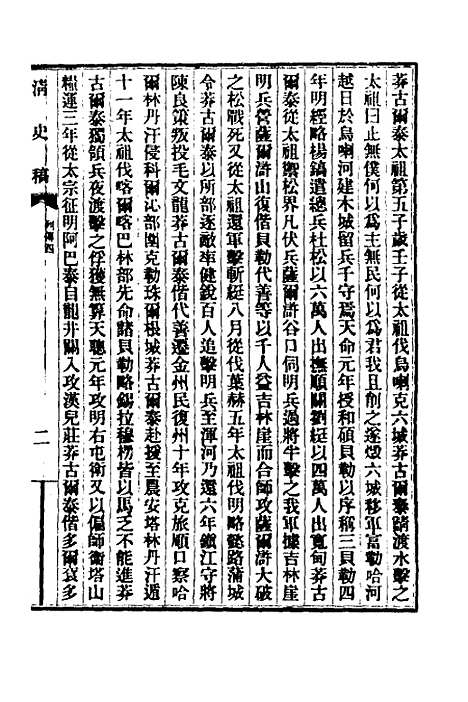 莽古爾泰太祖第五子歲壬子從太祖伐烏喇克六城莽古爾泰請渡水擊之
太祖曰止無僕何以爲主無民何以爲君我且削之遂燬六城移軍富勒哈河
越日於烏喇河建木城留兵千守焉天命元年授和碩貝勒以序稱三貝勒四
年明經略楊鎬遣總兵杜松以六萬人出撫順關劉綎以四萬人出寬甸莽古
爾泰從太祖禦松界凡伏兵薩爾滸谷口伺明兵過將半擊之我軍據吉林崖
明兵營薩爾滸山復偕貝勒代善等以千人益吉林崖而合師攻薩爾滸大破
之松戰死又從太祖還軍擊斬綎八月從伐葉赫五年太祖伐明略懿路蒲城
令莽古爾泰以所部逐敵率健銳百人追擊明兵至渾河乃還六年鎭江守將
陳良策叛投毛文龍莽古爾泰偕代善遷金州民復州十年攻克旅順口察哈
爾林丹汗侵科爾沁部圍克勒珠爾根城莽古爾泰赴援至農安塔林丹汗遁
十一年太祖伐喀爾喀巴林部先命諸貝勒略錫拉穆楞皆以馬乏不能進莽
古爾泰獨領兵夜渡擊之俘獲無算天聰元年攻明右屯衛又以偏師衛塔山
糧運三年從太宗征明阿巴泰自龍井關入攻漢兒莊莽古爾泰偕多爾袞多
清史稿
列傳四
二